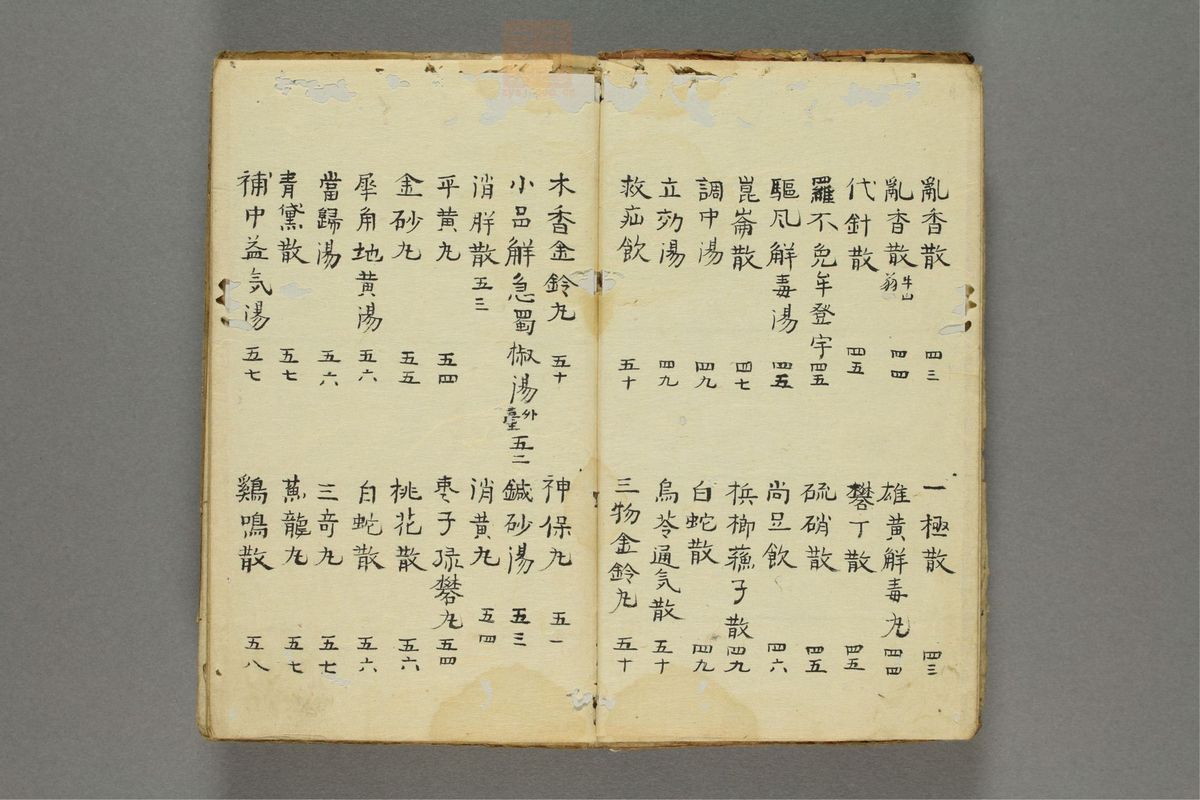 亂香散 四三
亂香散 牛山翁 四四
代針散 四五
羅不免牟登宇 四五
驅風解毒湯 四五
崑崙散 四七
調中湯 四九
立効湯 四九
救疝飲 五十
一極散 四三
雄黄解毒丸 四四
礬丁散 四五
硫硝散 四五
尚豆飲 四六
梹榔蘓子散 四九
白蛇散 四九
烏苓通気散 五十
三物金鈴丸 五十
木香金鈴丸 五十
小品解急蜀椒湯 外臺 五二
消胖散 五三
平黄丸 五四
金砂丸 五五
犀角地黄湯 五六
當歸湯 五六
青黛散 五七
補中益気湯 五七
神保丸 五一
鍼砂湯 五三
消黄丸 五四
枣子礬丸 五四
桃花散 五六
白蛇散 五六
三竒丸 五七
龍丸 五七
鷄鳴散 五八